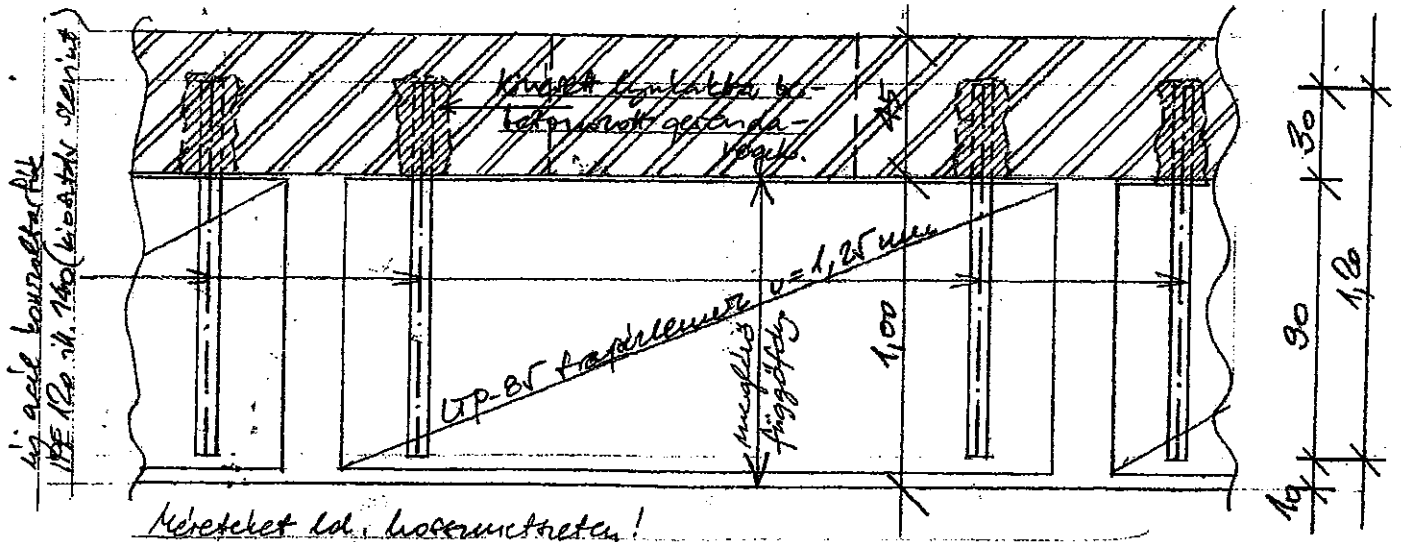 új acél konzoltartók
IPE 120 ill. 140 (kiosztás szerint)
kivésett lyukakba be-
betonozott gerenda-
végek.
45
LTP-85 trapézlemez v=1,25 mm
meglévő
függőfolyosó
1,00
30
90
10
1,20
Méreteket ld. hosszmetszeten!